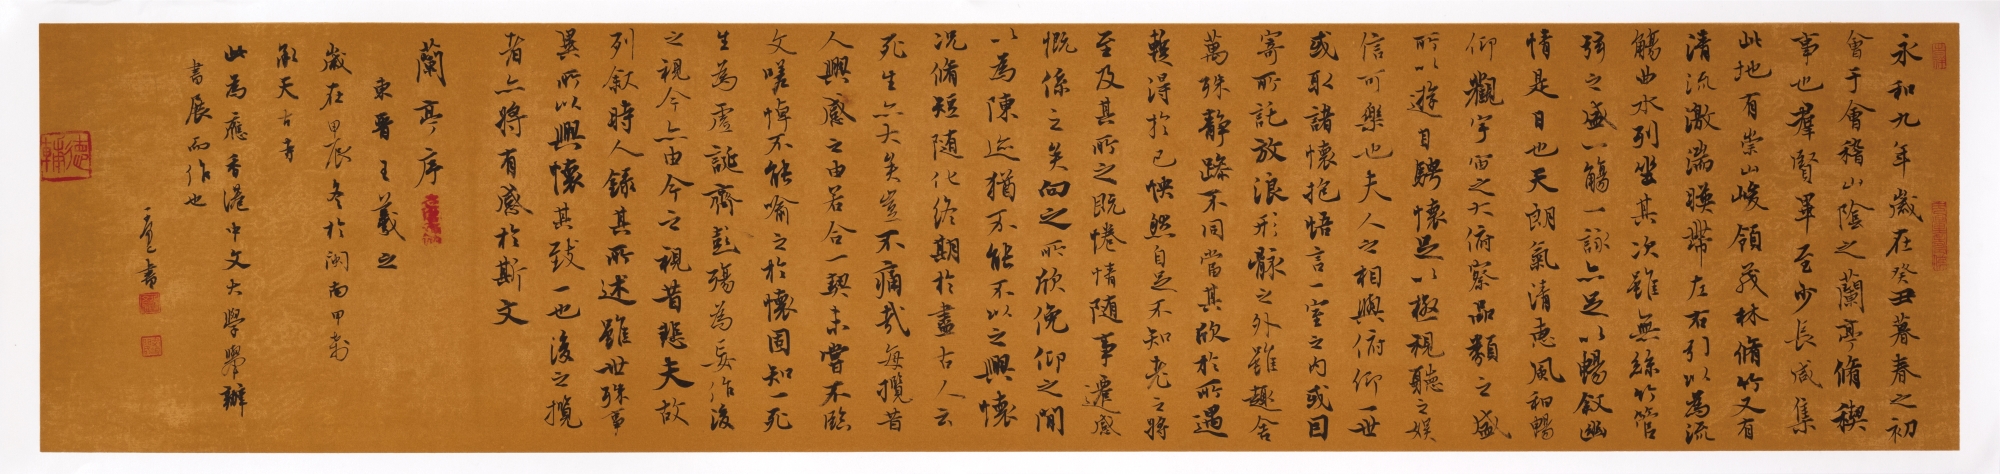 永和九年歲在癸丑暮春之初
會于會稽山陰之蘭亭脩稧
事也羣賢畢至少長咸集
此地有崇山峻領茂林脩竹又有
清流激湍暎帶左右引以為流
觴曲水列坐其次雖無絲竹管
弦之盛一觴一詠亦足以暢敘幽
情是日也天朗氣清惠風和暢
仰觀宇宙之大俯察品類之盛
所以遊目騁懷足以極視聽之娛
信可樂也夫人之相與俯仰一世
或取諸懷抱悟言一室之內或因
寄所託放浪形骸之外雖趣舍
萬殊靜躁不同當其欣於所遇
輒得於己怏然自足不知老之將
至及其所之既惓情隨事遷感
慨係之矣向之所欣俛仰之間
以為陳迹猶不能不以之興懷
況脩短隨化終期於盡古人云
死生亦大矣豈不痛哉每攬昔
人興感之由若合一契未嘗不臨
文嗟悼不能喻之於懷固知一死
生為虛誕齊彭殤為妄作後
之視今亦由今之視昔悲夫故
列敘時人錄其所述雖世殊事
異所以興懷其致一也後之攬
者亦將有感於斯文
蘭亭序
東晉王羲之
歲在甲辰冬於閩南甲
天古書
此為應香港中文大學舉辦
書展而作也
書
德輔